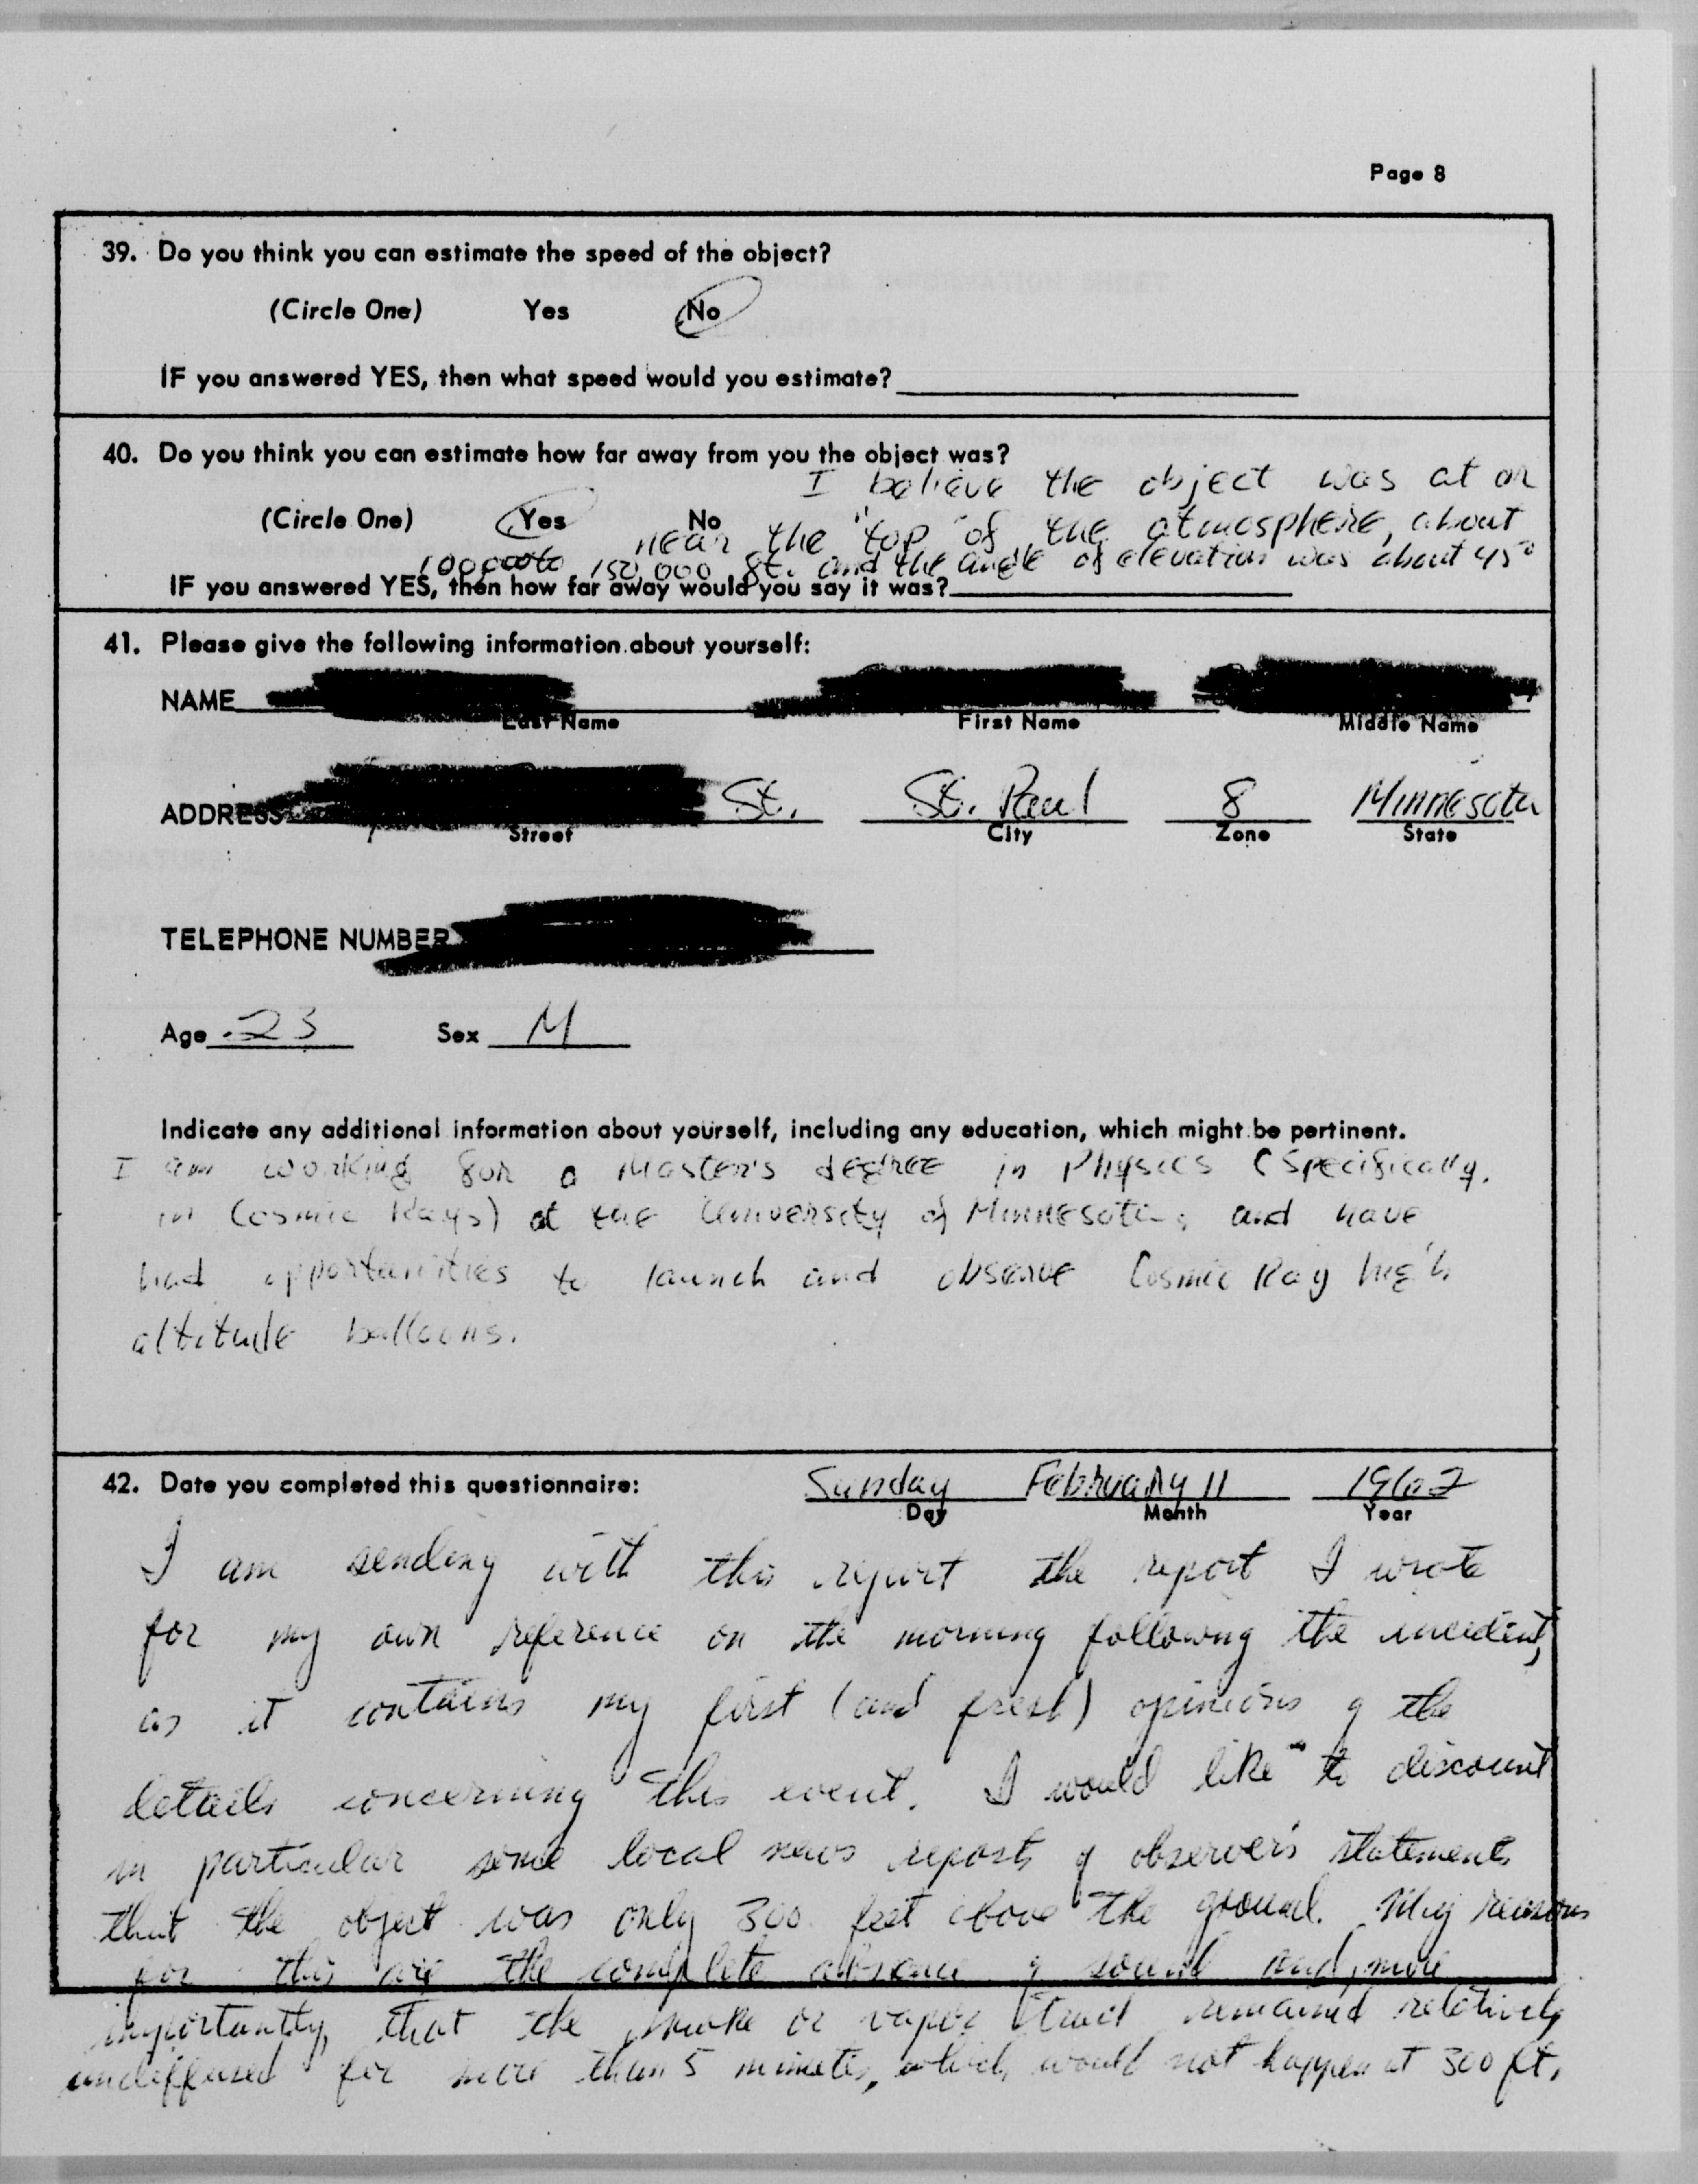 Page 8
39. Do you think you can estimate the speed of the object?
(Circle One) Yes No
IF you answered YES, then what speed would you estimate?
40. Do you think you can estimate how far away from you the object was?
I believe the object was at or
(Circle One) Yes No
near the "top" of the atmosphere, about
100,000 to 150,000 ft. and the angle of elevation was about 45°
IF you answered YES, then how far away would you say it was?
41. Please give the following information about yourself:
NAME
Last Name First Name Middle Name
ADDRESS St. St. Paul 8 Minnesota
Street City Zone State
TELEPHONE NUMBER
Age 23 Sex M
Indicate any additional information about yourself, including any education, which might be pertinent.
I am working for a Master's degree in Physics (Specifically
in Cosmic Rays) at the University of Minnesota, and have
had opportunities to launch and observe Cosmic Ray high
altitude balloons.
42. Date you completed this questionnaire: Sunday February 11 1962
Day Month Year
I am sending with this report the report I wrote
for my own reference on the morning following the incident,
as it contains my first (and fresh) opinions of the
details concerning this event. I would like to discount
in particular some local news reports of observer's statements
that the object was only 300 feet above the ground. My reasons
for this are the complete absence of sound and, more
importantly, that the smoke or vapor trail remained relatively
undiffused for more than 5 minutes, which would not happen at 300 ft.